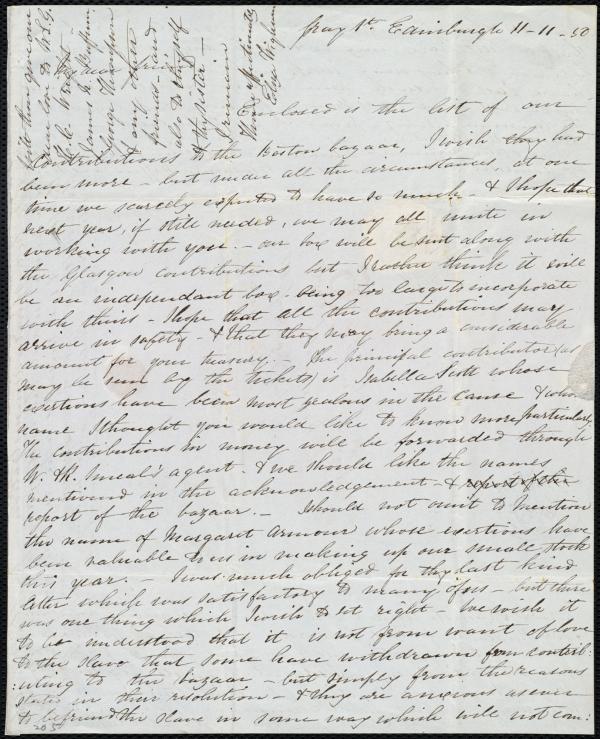 Gray St. Edinburgh 11-11-50
My dear friend
Enclosed is the list of our
contributions to the Boston bazaar, I wish they had
been more - but under all the circumstances, at one
time we scarcely expected to have so much - & I hope that
next year, if still needed, we may all unite in
working with you. - our box will be sent along with
the Glasgow contributions but I rather think it will
be an independant box - being too large to incorporate
with theirs - I hope that all the contributions may
arrive in safety - & that they may bring a considerable
amount for your treasury. - The principal contributor (as
may be seen by the tickets) is Isabella Scott whose
exertions have been most zealous in the cause & whose
name I thought you would like to know more particularly
The contributions in money will be forwarded through
W. & R. Smeal's agent. & we should like the names
mentioned in the acknowledgement & report of the
report of the bazaar. - I should not omit to mention
the name of Margaret Armour whose exertions have
been valuable to us in making up our small stock
this year. - I was much obliged for thy last kind
letter which was satisfactory to many of us - but there
was one thing which I wish to set right - We wish it
to be understood that it is not from want of love
to the slave that some have withdrawn from contrib-
:uting to the bazaar - but simply from the reasons
stated in their resolution - & they are anxious as ever
to befriend the slave in some way which will not com:
205
will thou give our
love to W.L.G.
H.C. Wright
James N. Buffum
George Thompson
& any other
friends - and
also to thyself
& thy sister -
I remain
thine affectionately
Eliza Wigham